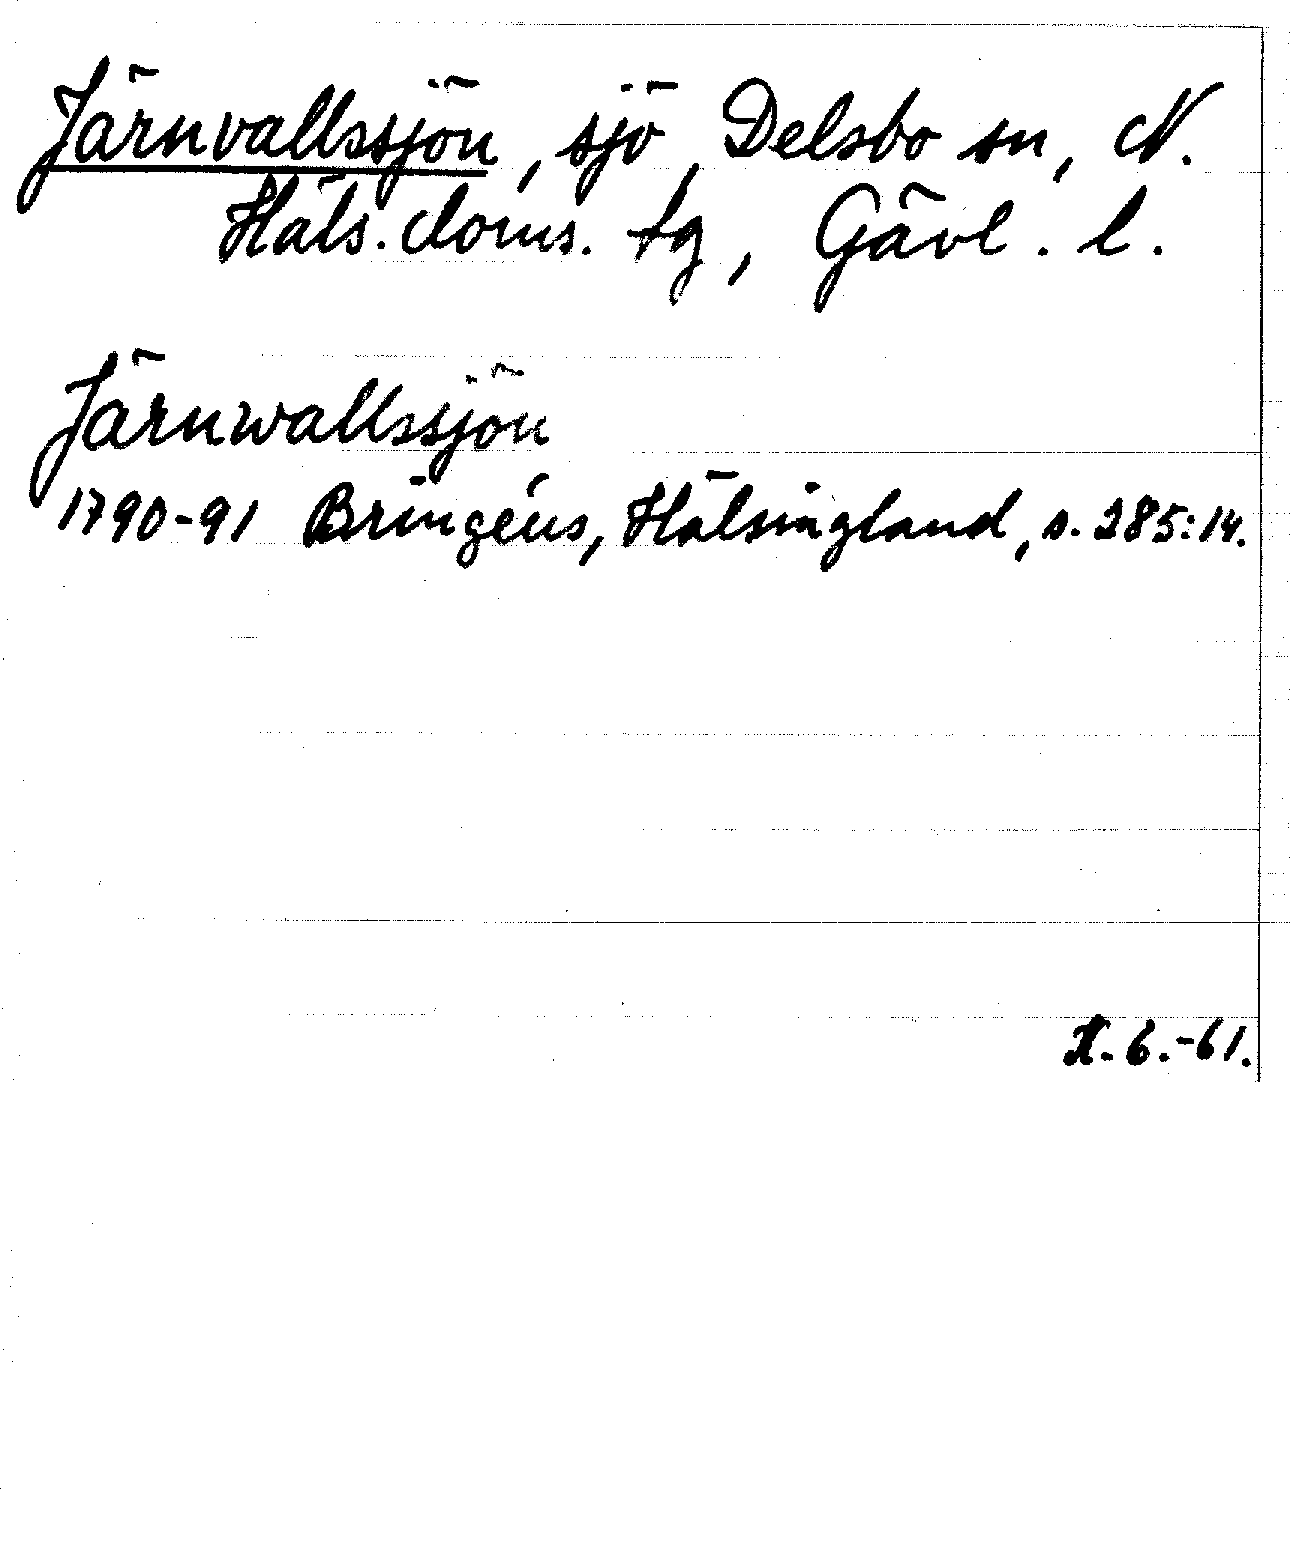 Järnvallssjön, sjö, Delsbo sn, N.
Häls. doms. tg, Gävl. l.
Järnwallssjön
1790-91 Bringéus, Hälsingland, s. 285:14.
X. 6.-61.